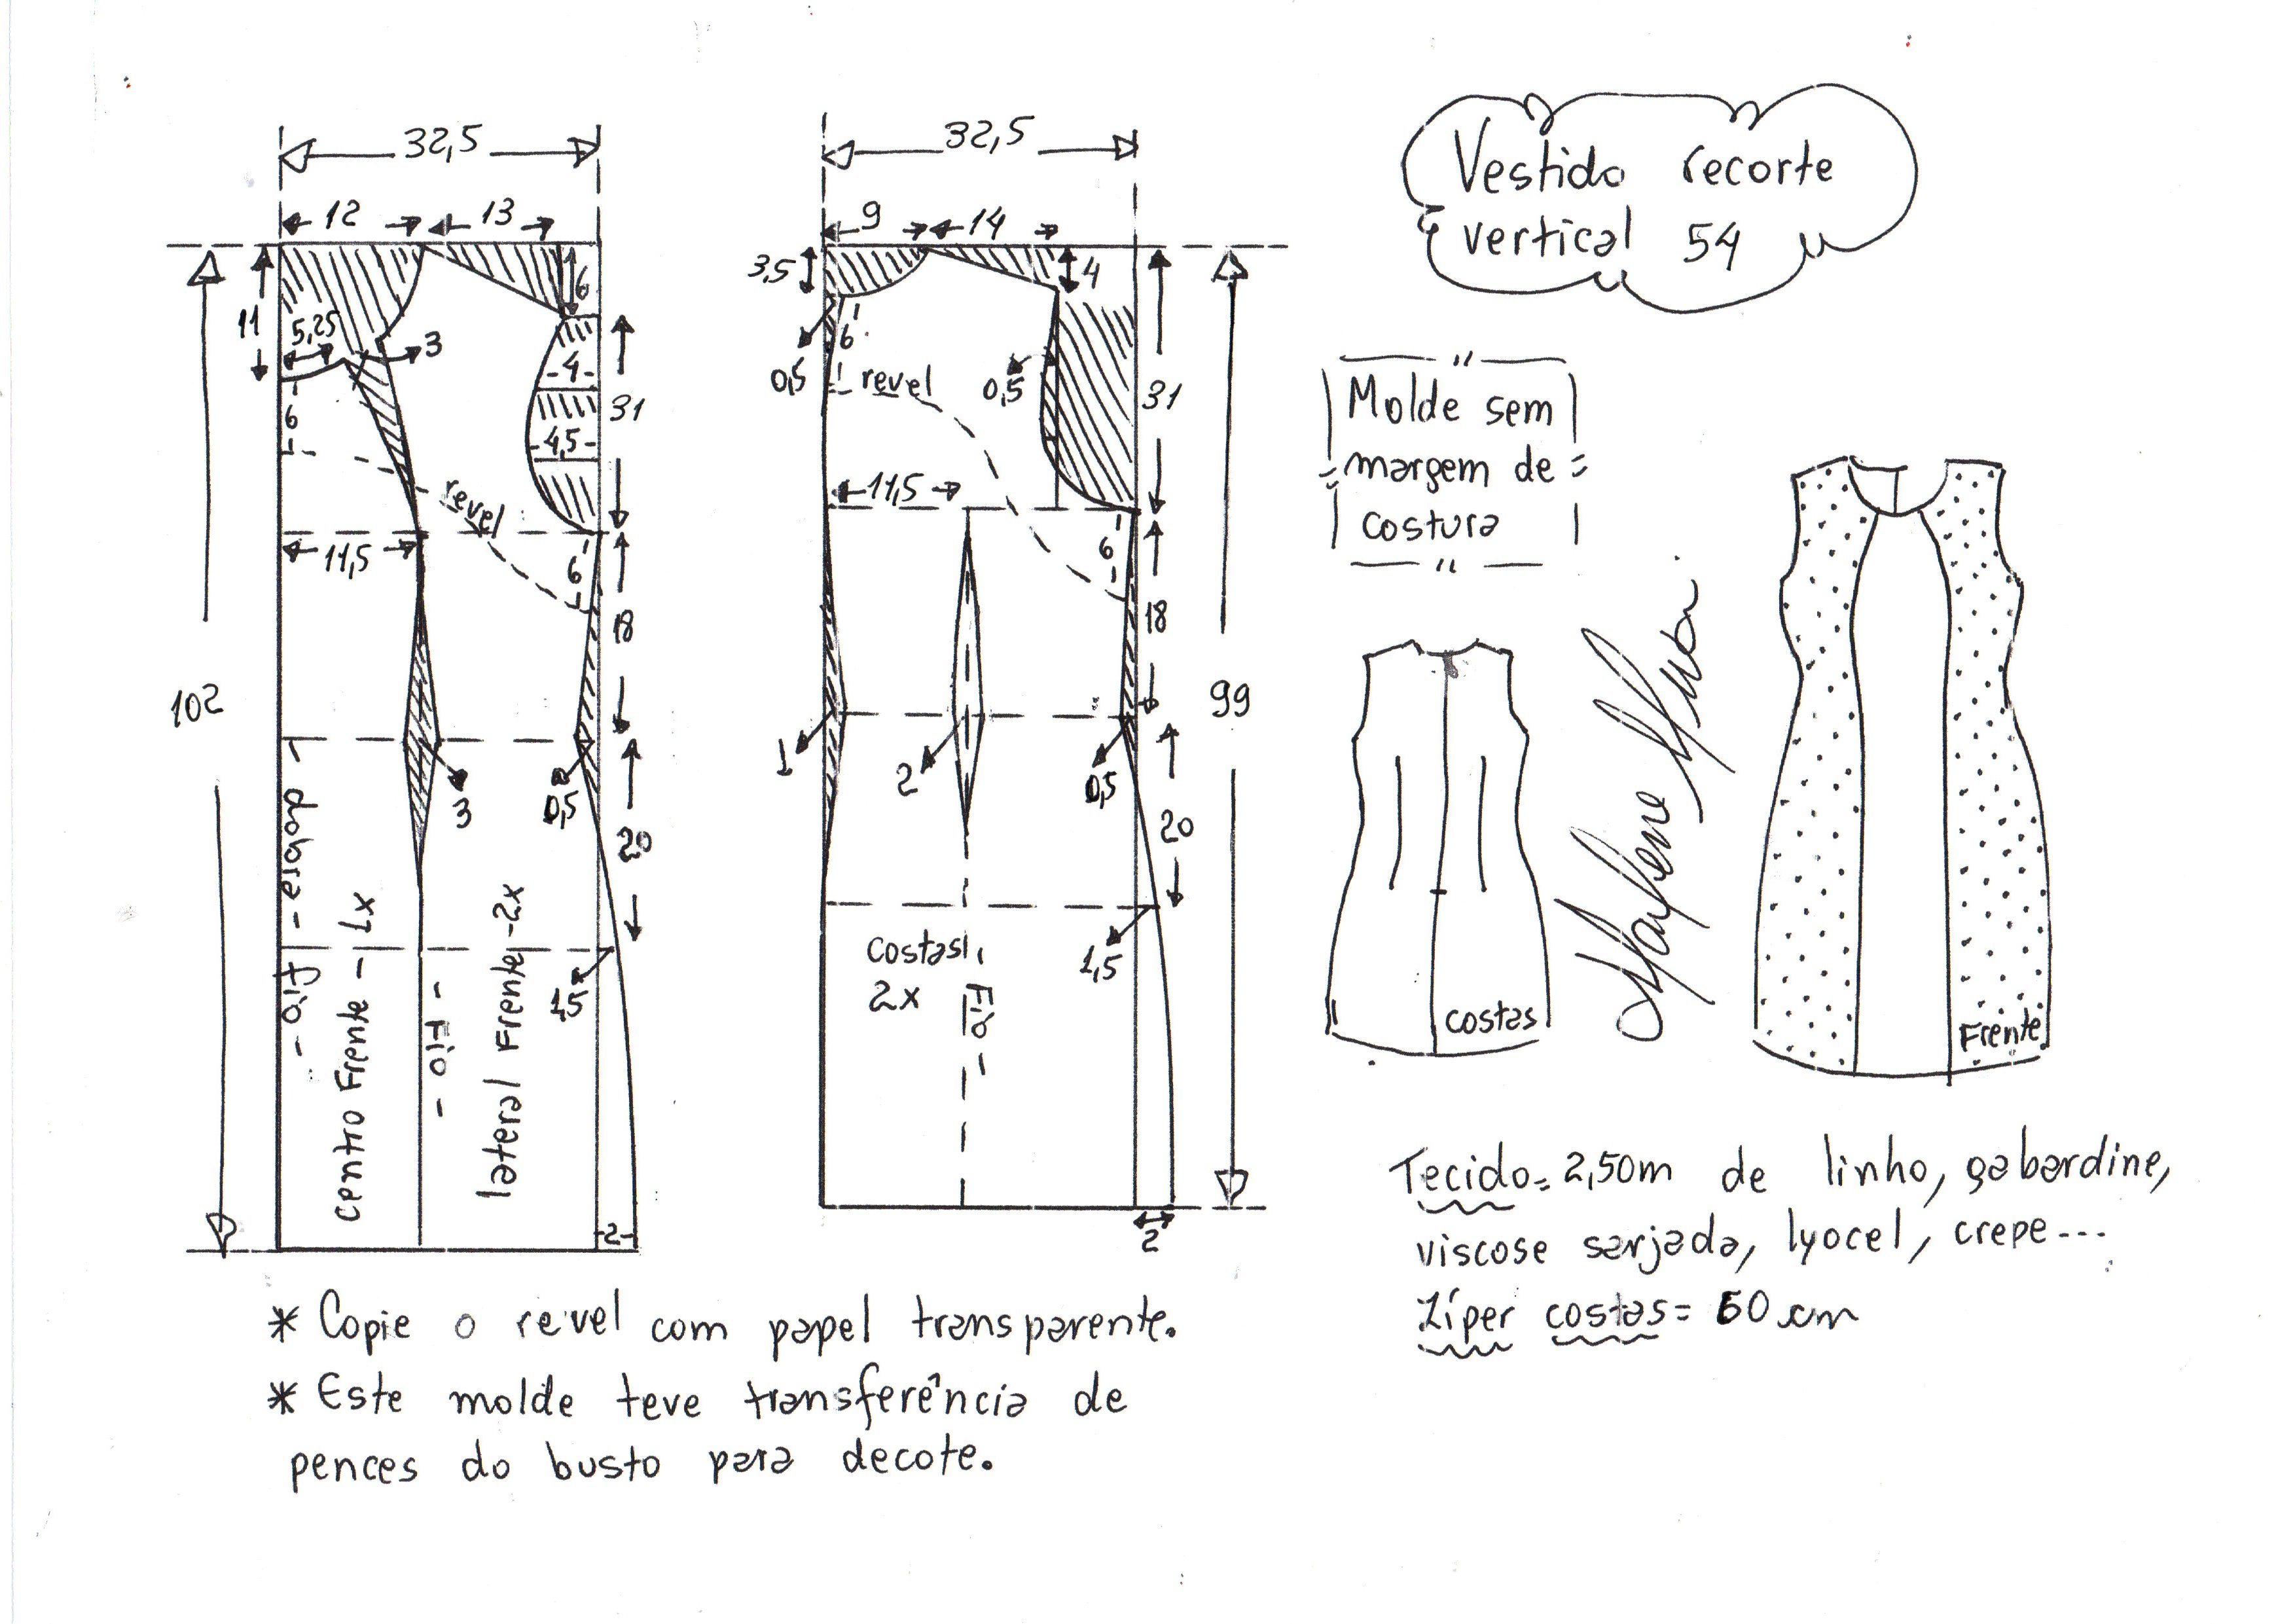 Vestido recorte
vertical 54
Molde sem
margem de
costura
32,5
12
13
11
5,25
3
6
6
4
4,5
31
revel
11,5
6
18
102
3
0,5
20
dobra -
Fio -
centro Frente - 1x
- Fio -
lateral Frente - 2x
1,5
-2-
32,5
9
14
3,5
4
6
0,5
revel
0,5
31
11,5
6
18
99
1
2
0,5
20
costas
2x
Fio -
1,5
2
costas
Frente
Marlene Mukai
Tecido = 2,50m de linho, gabardine,
viscose sarjada, lyocel, crepe...
Zíper costas = 60 cm
* Copie o revel com papel transparente.
* Este molde teve transferência de
pences do busto para decote.